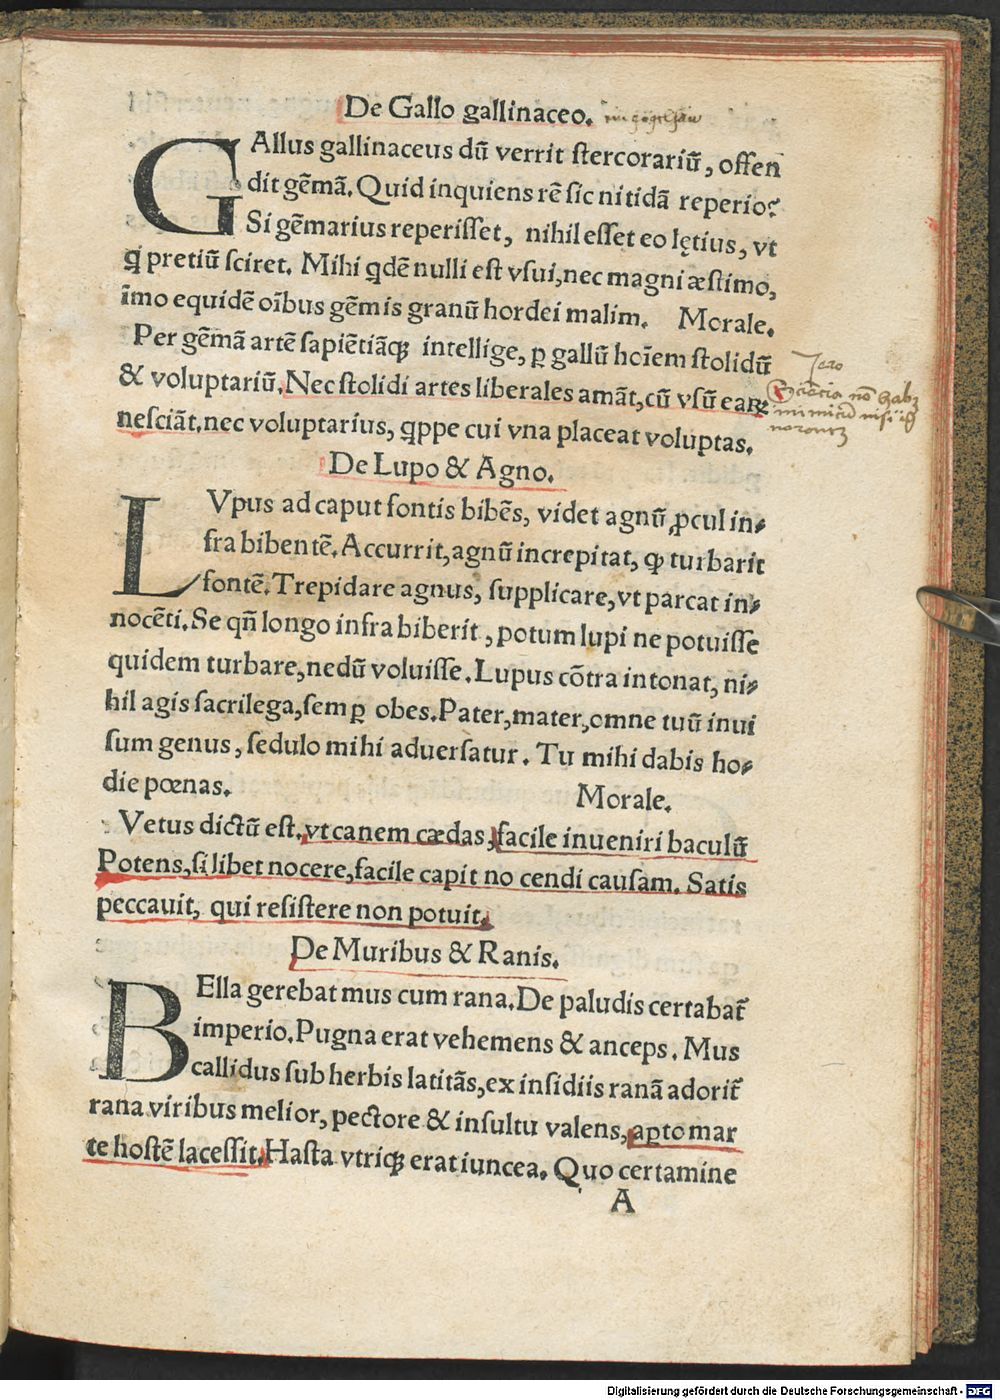 De Gallo gallinaceo.
GAllus gallinaceus dū verrit ſtercorariū, offen
dit gēmā. Quid inquiens rē ſic nitidā reperio?
Si gēmarius reperiſſet, nihil eſſet eo lętius, vt
q̇ pretiū ſciret. Mihi qdē nulli eſt vſui, nec magni æſtimo,
īmo equidē oībus gēmis granū hordei malim. Morale.
Per gēmā artē ſapiētiāqꝫ intellige, ꝑ gallū hoīem ſtolidū
& voluptariū. Nec ſtolidi artes liberales amāt, cū vſū eaꝝ
neſciāt, nec voluptarius, qppe cui vna placeat voluptas.
De Lupo & Agno.
LVpus ad caput fontis bibēs, videt agnū ꝓcul in⸗
fra bibentē. Accurrit, agnū increpitat, ꝙ turbarit
fontē. Trepidare agnus, ſupplicare, vt parcat in⸗
nocēti. Se qn̄ longo infra biberit, potum lupi ne potuiſſe
quidem turbare, nedū voluiſſe. Lupus cōtra intonat, ni⸗
hil agis ſacrilega, ſemꝑ obes. Pater, mater, omne tuū inui
ſum genus, ſedulo mihi aduerſatur. Tu mihi dabis ho⸗
die pœnas. Morale.
Vetus dictū eſt. vt canem cædas, facile inueniri baculū
Potens, ſi libet nocere, facile capit no cendi cauſam. Satis
peccauit, qui reſiſtere non potuit.
De Muribus & Ranis.
BElla gerebat mus cum rana. De paludis certabat̄
imperio. Pugna erat vehemens & anceps. Mus
callidus ſub herbis latitās, ex inſidiis ranā adorit̄
rana viribus melior, pectore & inſultu valens, aꝑto mar
te hoſtē laceſſit. Haſta vtriqꝫ erat iuncea. Quo certamine
A
Digitalisierung gefördert durch die Deutsche Forschungsgemeinschaft - DFG